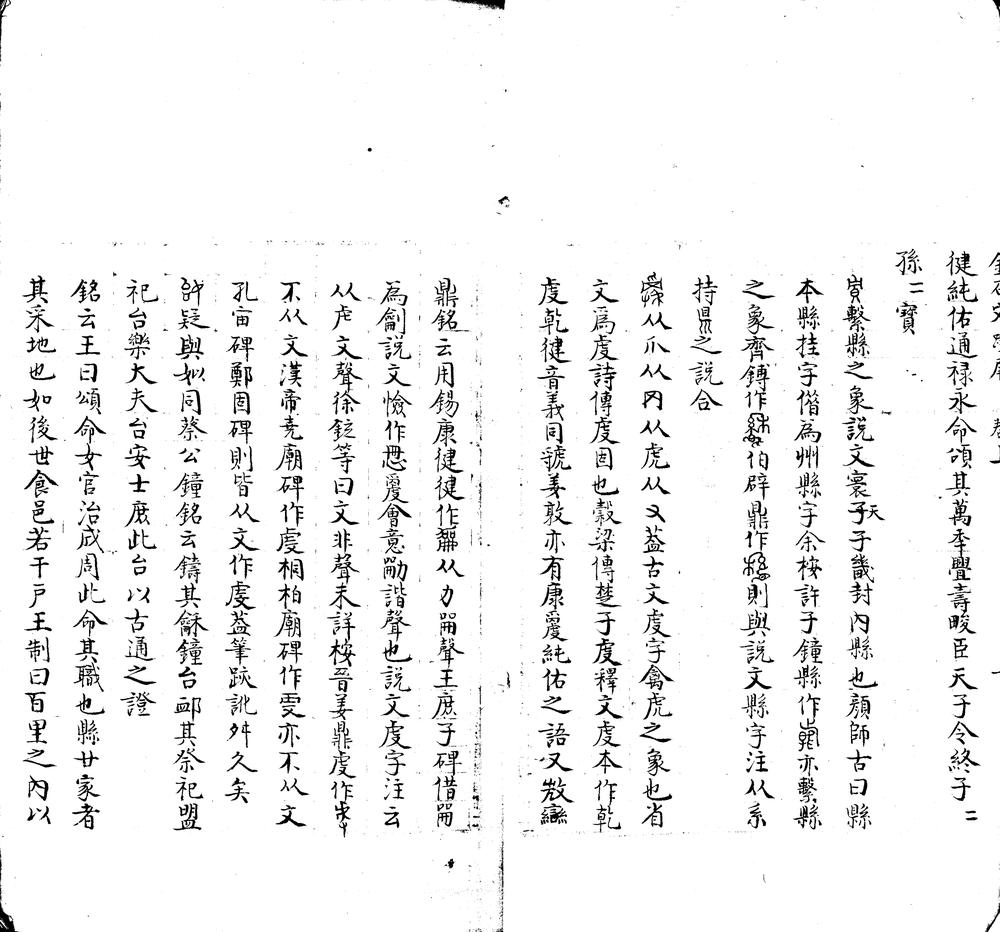 健純佑通祿永命頌其萬年疊壽畯臣天子令終子二
孫二寶
繫縣之象說文寰天子畿封內縣也顏師古曰縣
本縣挂字借為州縣字余桉許子鐘縣作亦繫縣
之象齊鎛作伯辟鼎作則與說文縣字注从系
持之說合
从爪从冈从虎从又葢古文虔字禽虎之象也省
文為虔詩傳虔固也榖梁傳楚于虔釋文虔本作乾
虔乾健音義同號姜敦亦有康純佑之語又敖
鼎銘云用錫康健健作从力聲王庶子碑借
為劊說文憸作會意諧聲也說文虔字注云
从虍文聲徐鉉等曰文非聲未詳桉晉姜鼎虔作
不从文漢帝堯廟碑作虔桐柏廟碑作亦不从文
孔宙碑鄭固碑則皆从文作虔葢筆跡訛舛久矣
許疑與姒同蔡公鐘銘云鑄其龢鐘台其祭祀盟
祀台樂大夫台安士庶此台以古通之證
銘云王曰頌命女官治成周此命其職也縣廿家者
其采地也如後世食邑若干戶王制曰百里之內以